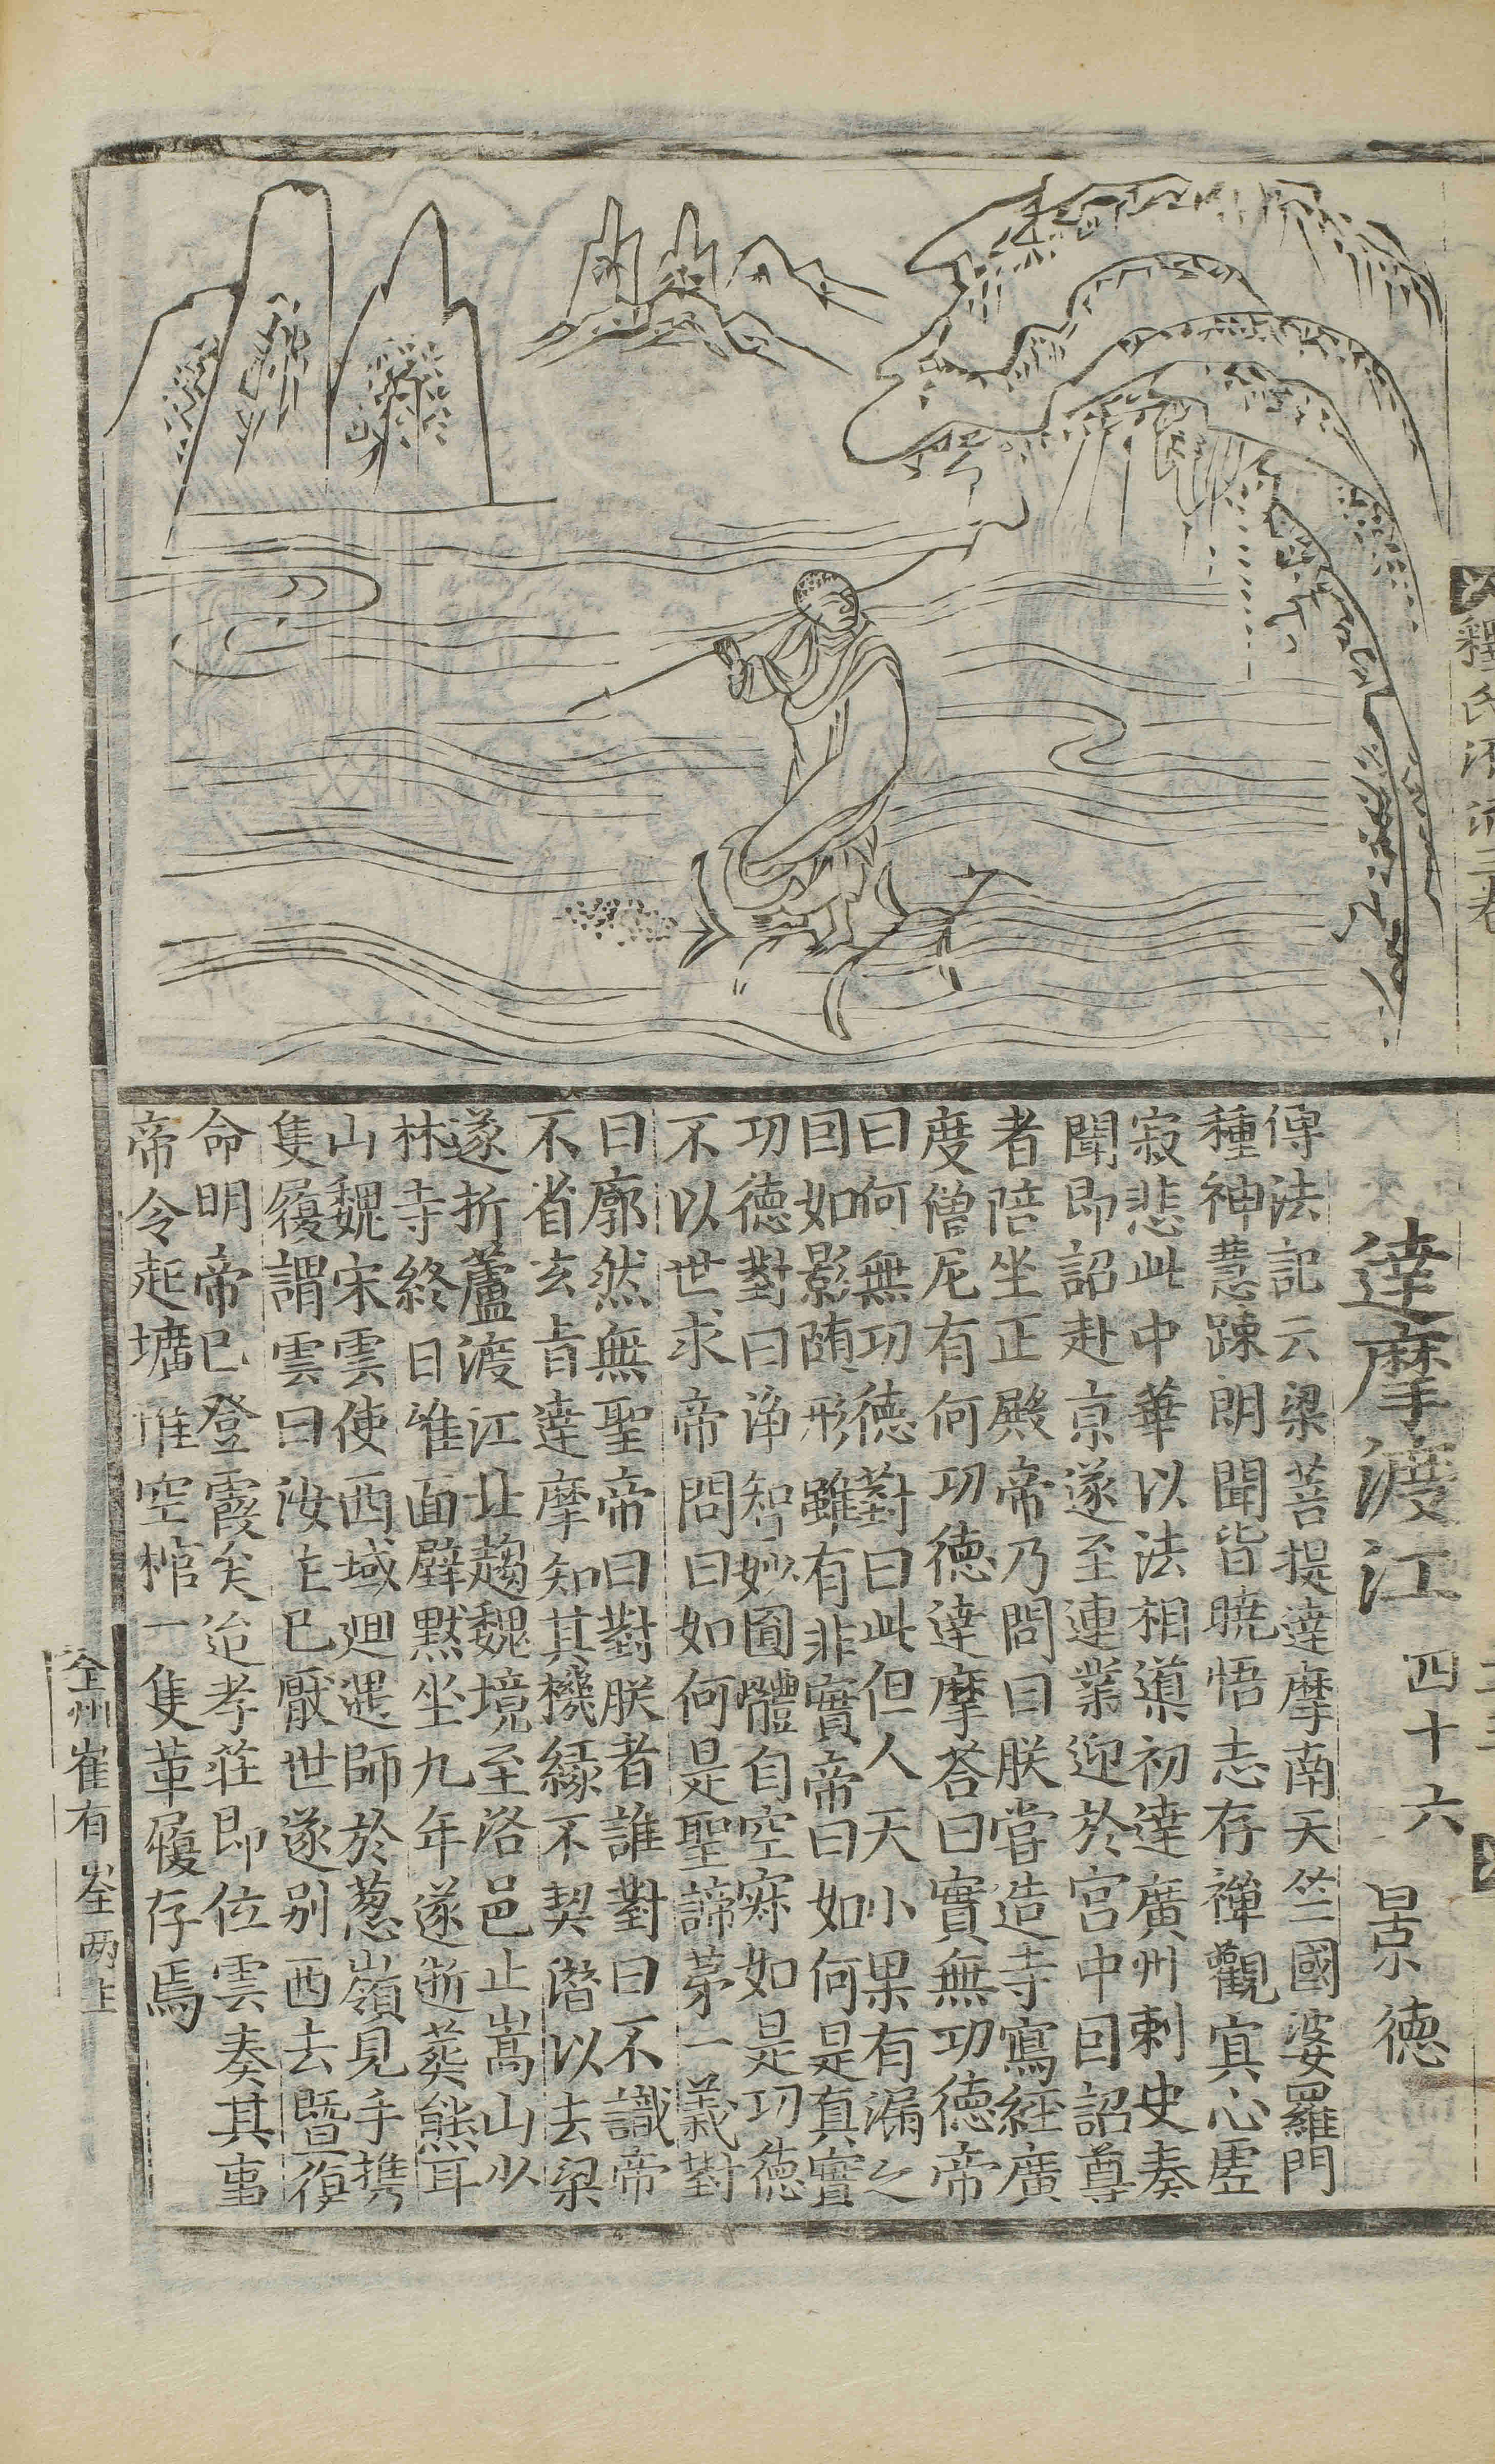 達摩渡江 四十六 景德
傳法記云梁菩提達摩南天竺國婆羅門
種神慧踈朗聞皆曉悟志存禪觀寘心虛
寂悲此中華以法相導初達廣州刺史奏
聞即詔赴京遂至連業迎於宮中回詔尊
者陪坐正殿帝乃問曰朕嘗造寺寫經廣
度僧尼有何功德達摩荅曰實無功德帝
曰何無功德對曰此但人天小果有漏之
因如影随形雖有非實帝曰如何是真實
功德對曰淨智妙圓體自空寂如是功德
不以世求帝問曰如何是聖諦苐一義對
曰廓然無聖帝曰對朕者誰對曰不識帝
不省玄旨達摩知其機緣不契潜以去梁
遂折蘆渡江北趨魏境至洛邑止嵩山少
林寺終日唯面壁默坐九年遂逝葬熊耳
山魏宋雲使西域迴遇師於葱嶺見手携
隻履謂雲曰汝主已厭世遂别西去曁復
命明帝已登霞矣迨孝莊即位雲奏其事
帝令起壙惟空棺一隻革履存焉
全州崔有峑两主
釋氏源流三卷